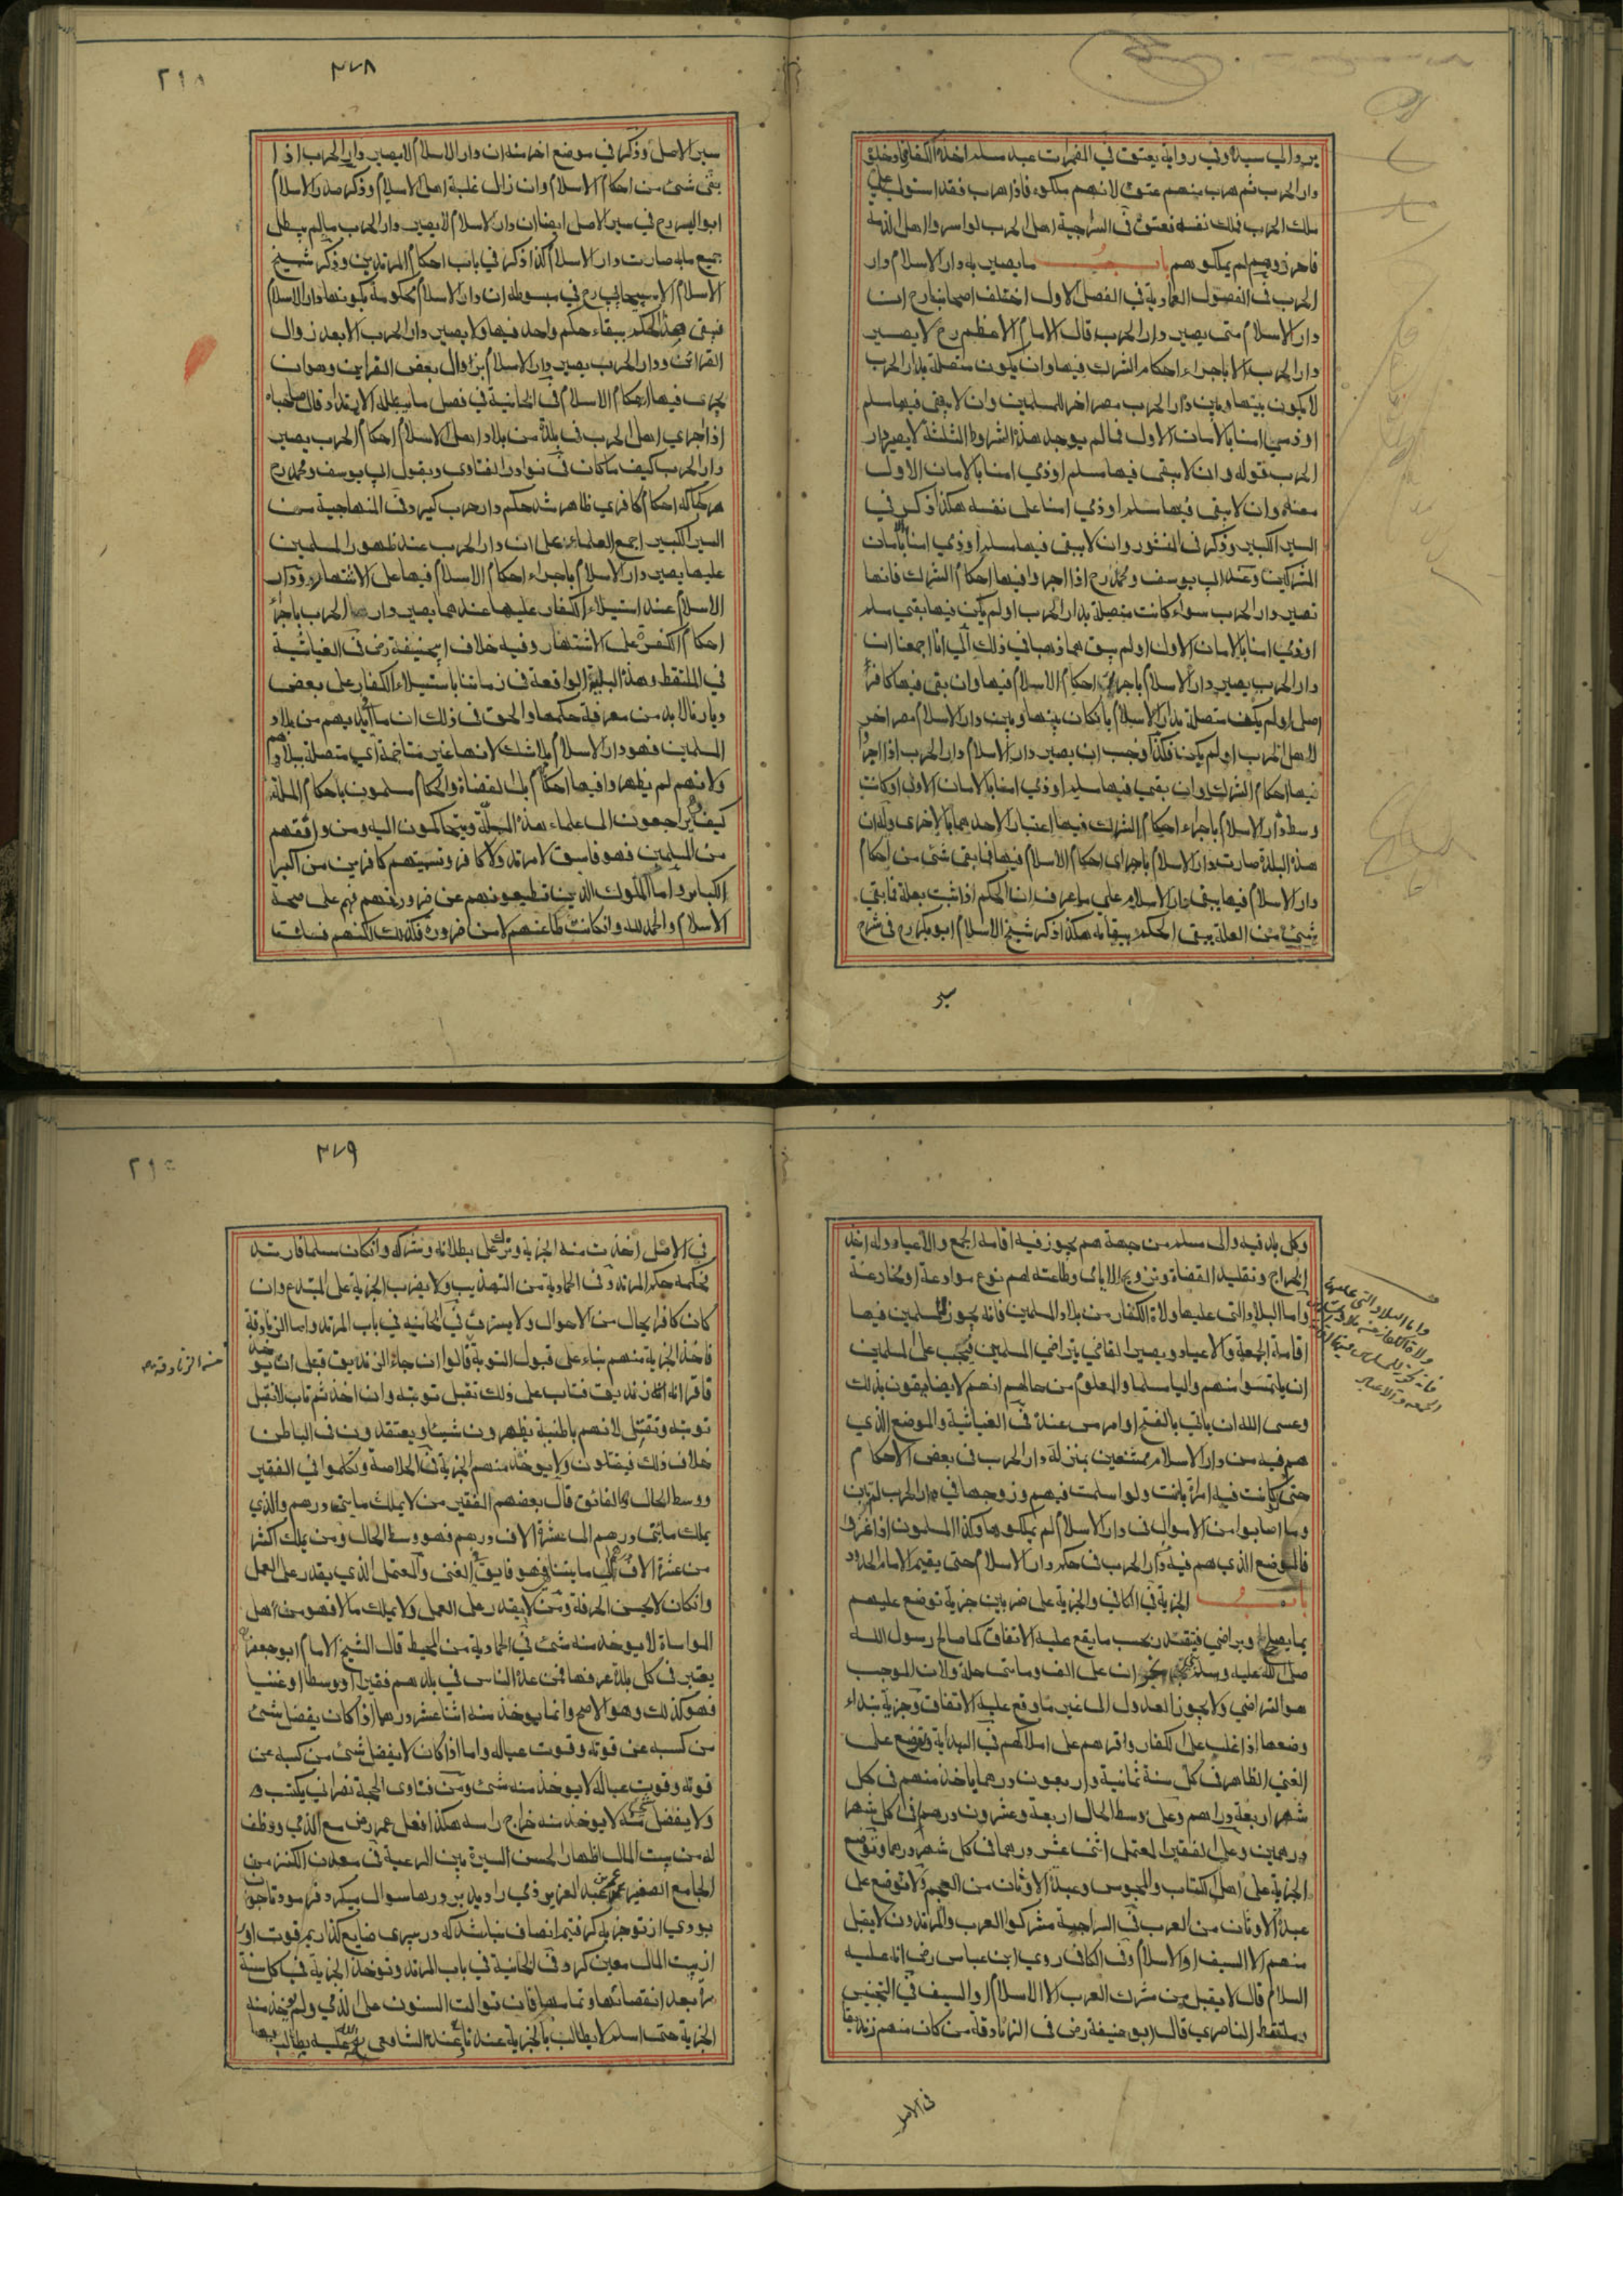 يرد الي سيده وفي رواية يعتق في المضمرات عبد مسلم اخذه الكفار وادخلوه
دار الحرب ثم هرب منهم عتق لانهم ملكوه فاذا هرب فقد استولي علي
ملك الحرب فملك نفسه فعتق في السراجية اهل الحرب لو اسروا اهل الذمة
فاحرزوهم لم يملكوهم باب ما يصير به دار الاسلام دار
الحرب في الفصول العمادية في الفصل الاول اختلف اصحابنا رح ان
دار الاسلام متى يصير دار الحرب قال الامام الاعظم رح لا يصير
دار الحرب الا باجراء احكام الشرك فيها وان يكون متصلة بدار الحرب
لا يكون بينها وبين دار الحرب مصر اخر للمسلمين وان لا يبقى فيها مسلم
او ذمي امنا بالامان الاول فما لم يوجد هذه الشروط الثلثة لا يصير دار
الحرب قوله وان لا يبقى فيها مسلم او ذمي امنا بالامان الاول
معناه وان لا يبقى فيها مسلم او ذمي امنا على نفسه هكذا ذكر في
السير الكبير وذكر في المنثور وان لا يبقى فيها مسلم او ذمي امنا بامان
المشركين وعند ابي يوسف ومحمد رح اذا اجروا فيها احكام الشرك فانها
تصير دار الحرب سواء كانت متصلة بدار الحرب او لم يكن فيها بقي مسلم
او ذمي امنا بالامان الاول او لم يبق هما ذهبا في ذلك الي انا اجمعنا ان
دار الحرب يصير دار الاسلام باجراء احكام الاسلام فيها وان بقي فيها كافر
اصلي او لم يكن متصلة بدار الاسلام بان كان بينها وبين دار الاسلام مصر اخر
لاهل الحرب او لم يكن فكذا وجب ان يصير دار الاسلام دار الحرب اذا اجروا
فيها احكام الشرك وان بقي فيها مسلم او ذمي امنا بالامان الاول او كانت
وسط دار الاسلام باجراء احكام الشرك فيها اعتبار الاحدهما بالاخرى وله ان
هذه البلدة صارت دار الاسلام باجراى احكام الاسلام فيها فما بقى شئ من احكام
دار الاسلام فيها يبقى دار الاسلام على ما عرف ان الحكم اذا ثبت بعلة فما بقي
شئ من العلة يبقى الحكم ببقائه هكذا ذكر شيخ الاسلام ابو بكر رح في شرح
سير
٣٧٨
سير الاصل وذكر في موضع اخر منه ان دار الاسلام لا يصير دار الحرب اذا
بقى شئ من احكام الاسلام وان زال غلبة اهل الاسلام وذكر صدر الاسلام
ابو اليسر رح في سير الاصل ايضا ان دار الاسلام لا يصير دار الحرب ما لم يبطل
جميع ما به صارت دار الاسلام كذا ذكر في باب احكام المرتدين وذكر شيخ
الاسلام الاسبيجابي رح في مبسوطه ان دار الاسلام محكومة بكونها دار الاسلام
فيبقى هذا الحكم ببقاء حكم واحد فيها ولا يصير دار الحرب الا بعد زوال
القراين ودار الحرب يصير دار الاسلام بزوال بعض القراين وهو ان
يجرى فيها احكام الاسلام في الخانية في فصل ما يبطله الارتداد قال صاحباه
اذا اجرى اهل الحرب في بلدة من بلاد اهل الاسلام احكام الحرب يصير
دار الحرب كيف ما كان في نوادر الفتاوى وبقول ابي يوسف ومحمد رح
هر كجا كه احكام كافرى ظاهر شد حكم دار حرب كيرد وفي المنهاجية من
السير الكبير اجمع العلماء على ان دار الحرب عند ظهور المسلمين
عليها يصير دار الاسلام باجراء احكام الاسلام فيها على الاشتهار ودار
الاسلام عند استيلاء الكفار عليها عندهما يصير دار الحرب باجراء
احكام الكفرة على الاشتهار وفيه خلاف ابيحنيفة رض في الغياثية
في الملتقط وهذه البلية الواقعة في زماننا باستيلاء الكفار على بعض
ديارنا لا بد من معرفة حكمها والحق في ذلك ان ما بايديهم من بلاد
المسلمين فهو دار الاسلام بلا شك لانها غير متاخمة اي متصلة ببلادهم
ولانهم لم يظهروا فيها احكام بل القضاة والحكام مسلمون باحكام الملة
كيف يراجعون الى علماء هذه الملة ويتحاكمون اليه ومن وافقهم
من المسلمين فهو فاسق لا مرتد ولا كافر وتسميتهم كافرين من اكبر
الكباير واما الملوك الذين تطيعونهم عن ضرورة فهم على صحة
الاسلام والحمد لله وان كانت طاعتهم لا من ضرورة فكذلك لكنهم فساق
وكل بلد فيه والى مسلم من جهة هم يجوز فيه اقامة الجمع والاعياد وله اخذ
الخراج وتقليد القضاة وتزويج الايامى وطاعته لهم نوع موادعة او مخادعة
واما البلاد التى عليها ولاة الكفار من بلاد المسلمين فانه يجوز للمسلمين فيها
اقامة الجمعة والاعياد ويصير القاضي بتراضي المسلمين فيجب على المسلمين
ان يلتمسوا منهم واليا مسلما والمعلوم من حالهم انهم لا يضايقون بذلك
وعسى الله ان ياتي بالفتح او امر من عنده في الغياثية والموضع الذي
هم فيه من دار الاسلام ممتنعين بمنزلة دار الحرب في بعض الاحكام
حتى كانت فيه امرأة بانت ولو اسلمت فيهم وزوجها في دار الحرب لم تبن
وما اصابوا من الاموال في دار الاسلام لم يملكوها وكذا المسلمون اذا غزوا
فالموضع الذي هم فيه كدار الحرب في حكم دار الاسلام حتى يقيم الامام الحدود
باب الجزية في الكافي والجزية على ضربين جزية توضع عليهم
بما يصلح وبراضي فيتقدر بحسب ما يقع عليه الاتفاق كما صالح رسول الله
صلى الله عليه وسلم نجران على الف ومأتى حلة ولان الموجب
هو التراضي ولا يجوز العدول الى غير ما وقع عليه الاتفاق وجزية يبتداء
وضعها اذا غلب على الكفار واقرهم على املاكهم في الهداية وتوضع على
الغني الظاهر في كل سنة ثمانية واربعون درهما ياخذ منهم في كل
شهر اربعة دراهم وعلى وسط الحال اربعة وعشرون درهم في كل شهر
درهمين وعلى الفقير المعتمل اثنى عشر درهما في كل شهر درهما وتوضع
الجزية على اهل الكتاب والمجوس وعبدة الاوثان من العجم ولا توضع على
عبدة الاوثان من العرب في السراجية مشركوا العرب والمرتدون لا يقبل
منهم الا السيف او الاسلام وفي الكافي روي ابن عباس رض انه عليه
السلام قال لا يقبل من مشرك العرب الا الاسلام او السيف في التجنيس
وملتقط الناصري قال ابو حنيفة رض في الزنادقة من كان منهم زنديقا
واما البلاد التى عليها
ولاة الكفار
الجمعة والاعياد
في الاصل
٣٧٩
في الاصل اخذت منه الجزية وترك على بطلانه وشركه وان كان مسلما فارتد
فحكمه حكم المرتد وفي الحمادية من التهذيب ولا يضرب الجزية على المبتدع وان
كان كافرا بحال من الاحوال ولا يسترق في الخانيه في باب المرتد واما الزنادقة
فاخذ الجزية منهم بناء على قبول التوبة قالوا ان جاء الزنديق قبل ان يوخذ
فاقر انه زنديق فتاب على ذلك تقبل توبته وان اخذ ثم تاب لا تقبل
توبته وتقتل لانهم باطنية يظهرون شيئا ويعتقدون في الباطن
خلاف ذلك فيقتلون ولا يوخذ منهم الجزية في الخلاصة وتكلموا في الفقير
ووسط الحال والفائق قال بعضهم الفقير من لا يملك مايتى درهم والذي
يملك مائتى درهم الى عشرة الاف درهم فهو وسط الحال ومن يملك اكثر
من عشرة الاف الى ما يتناهى فهو فايق الغنى والمعتمل الذي يقدر على العمل
وان كان لا يحسن الحرفة ومن لا يقدر على العمل ولا يملك مالا فهو من اهل
المواساة لا يوخذ منه شئ في الحمادية من المحيط قال الشيخ الامام ابو جعفر
يعتبر في كل بلدة عرفها فمن عده الناس في بلدهم فقيرا او وسطا او غنيا
فهو كذلك وهو الاصح وانما يوخذ منه اثنا عشر درهما اذا كان يفضل شئ
من كسبه عن قوته وقوت عياله واما اذا كان لا يفضل شئ من كسبه عن
قوته وقوت عياله لا يوخذ منه شئ ومن فتاوى الحجة نصراني يكتسب
ولا يفضل منه لا يوخذ منه خراج راسه هكذا فعل عمر رض مع الذمي ووظف
له من بيت المال اظهار الحسن السيرة بين الرعية في معدن الكنز من
الجامع الصغير عمر عبد العزيز ذمي را ديد بر درها سوال ميكرد فرمود تا جوان
بودي از تو جزيه كرفتيم انصاف نباشد كه در پيرى ضايع كذاريم قوت او را
از بيت المال معين كرد وفي الخانية في باب المرتد وتوخذ الجزية في كل سنة
مرة بعد انقضائها وتمامها فان توالت السنون على الذمي ولم يوخذ منه
الجزية حتى اسلم لا يطالب بالجزية عندنا وعند الشافعي رحمة الله عليه يطالب بها